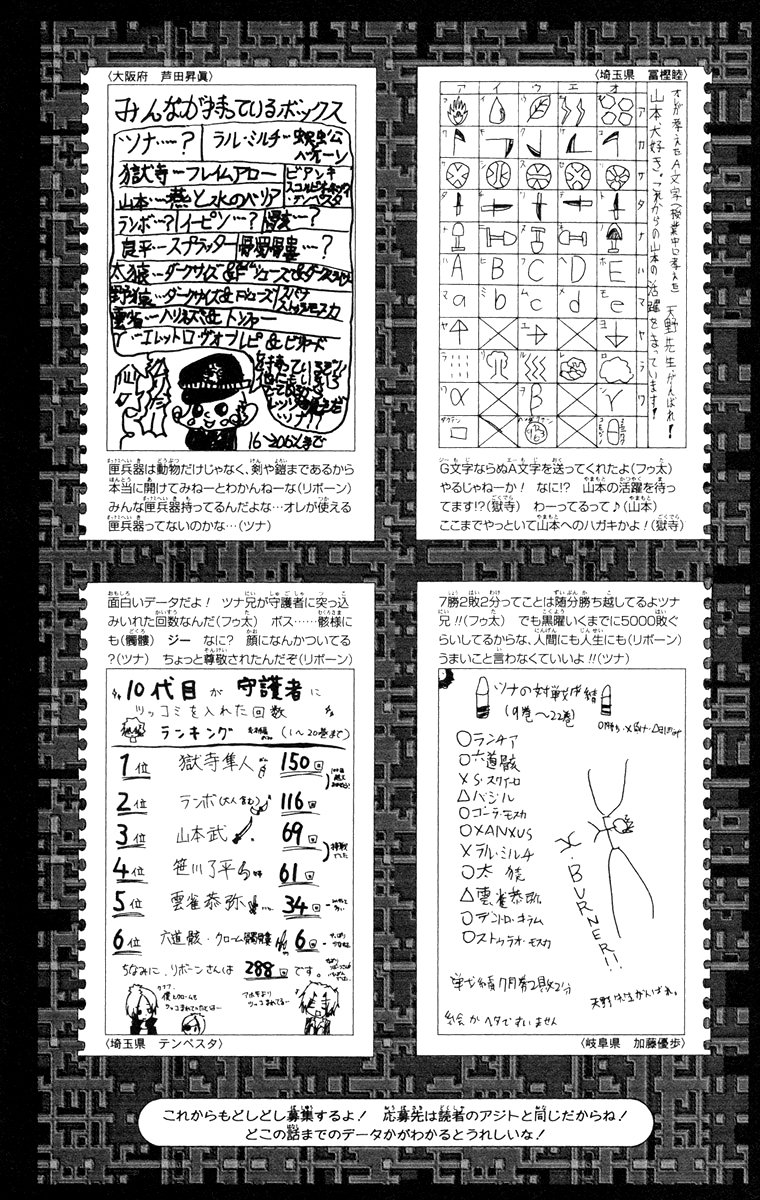 〈大阪府　芦田昇眞〉
みんなが持っているボックス
ツナ…？
ラル・ミルチ…
獄寺…フレイムアロー
ビアンキ
山本…燕と犬のベリア
ランボ…？
イーピン…？
良平…スプラッター
髑髏…？
太猿…ダークサイズ&
野猿…ダークサイズ&
雲雀…ハリネズミ&トンファー
16〜20めまで
匣兵器は動物だけじゃなく、剣や鎧まであるから
本当に開けてみねーとわかんねーな(リボーン)
みんな匣兵器持ってるんだよな…オレが使える
匣兵器ってないのかな…(ツナ)
〈埼玉県　冨樫睦〉
オレが考えたA文字(授業中に考えた)
山本大好き。これからの山本の活躍をまっています！
天野先生がんばれ！
ア イ ウ エ オ
ア カ サ タ ナ ハ マ ヤ ラ ワ
A B C D E
a b c d e
α β γ
G文字ならぬA文字を送ってくれたよ(フゥ太)
やるじゃねーか！　なに!?　山本の活躍を待っ
てます!?(獄寺)　わーってるって♪(山本)
ここまでやっといて山本へのハガキかよ！(獄寺)
面白いデータだよ！　ツナ兄が守護者に突っ込
みいれた回数なんだ(フゥ太)　ボス……骸様に
も(髑髏)　ジー　なに？　顔になんかついてる
？(ツナ)　ちょっと尊敬されたんだぞ(リボーン)
10代目が守護者に
ツッコミを入れた回数
ランキング
(1〜20巻まで)
1位 獄寺隼人 150回
2位 ランボ(大人含む) 116回
3位 山本武 69回
4位 笹川了平 61回
5位 雲雀恭弥 34回
6位 六道骸・クローム髑髏 6回
ちなみに、リボーンさんは 288回です。
〈埼玉県　テンペスタ〉
7勝2敗2分ってことは随分勝ち越してるよツナ
兄!!(フゥ太)　でも黒曜いくまでに5000敗ぐ
らいしてるからな、人間にも人生にも(リボーン)
うまいこと言わなくていいよ!!(ツナ)
ツナの対戦成績
(9巻〜22巻)
○ランチア
○六道骸
×S・スクアーロ
△バジル
○ゴーラ・モスカ
○XANXUS
×ラル・ミルチ
○太猿
△雲雀恭弥
○デンドロ・キラム
○ストゥラオ・モスカ
X・BURNER!!
戦績7勝2敗2分
天野先生がんばれ。
絵がヘタですいません
〈岐阜県　加藤優歩〉
これからもどしどし募集するよ！　応募先は読者のアジトと同じだからね！
どこの話までのデータかがわかるとうれしいな！